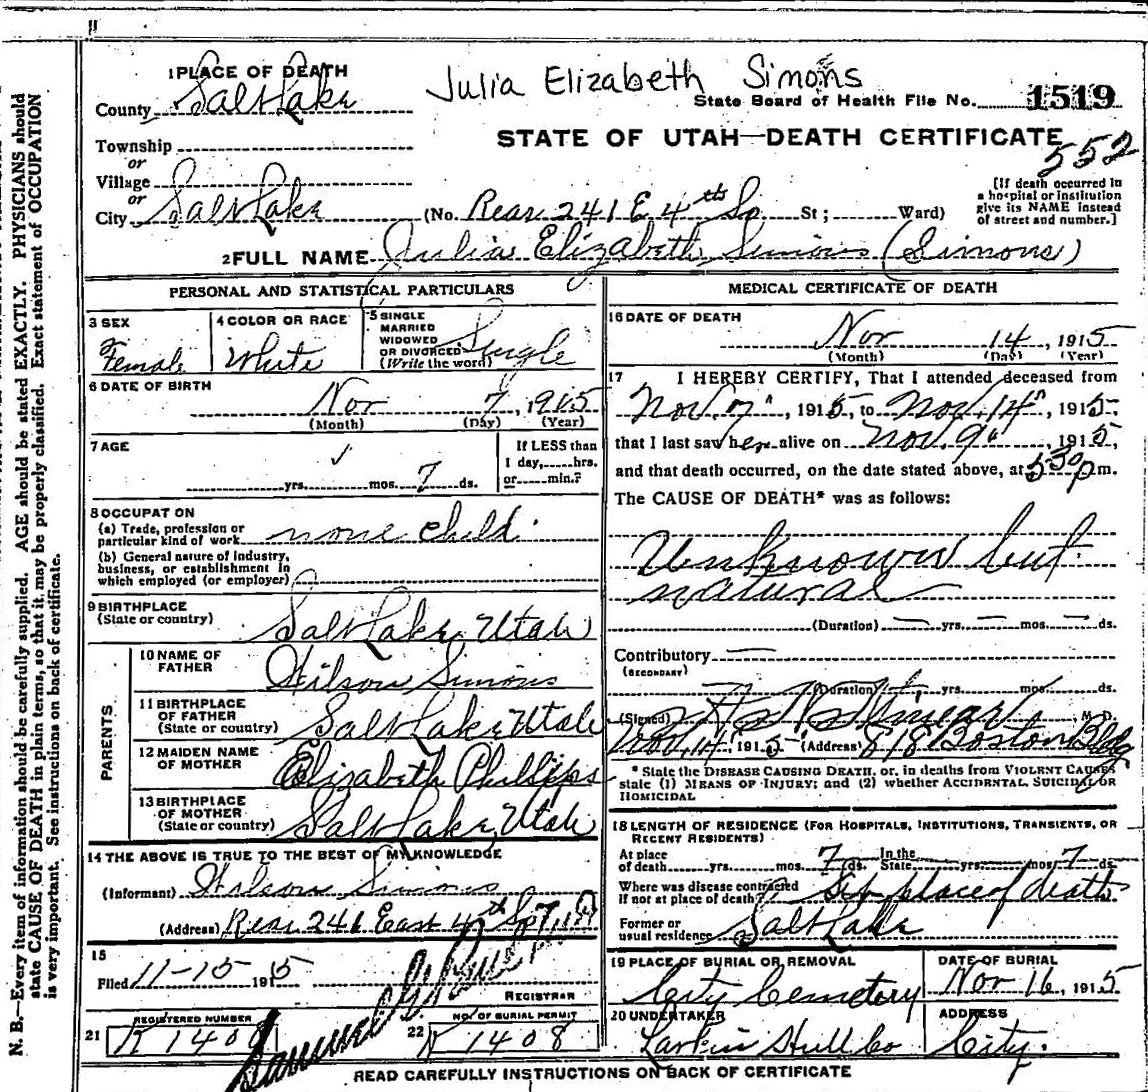 Julia Elizabeth Simons
1 PLACE OF DEATH
County Salt Lake
State Board of Health File No. 1519
STATE OF UTAH—DEATH CERTIFICATE
552
Township
or
Village
or
City Salt Lake (No. Rear 241 E 4th So St; Ward)
[If death occurred in
a hospital or institution
give its NAME instead
of street and number.]
2 FULL NAME Julia Elizabeth Simons (Simons)
PERSONAL AND STATISTICAL PARTICULARS
3 SEX
Female
4 COLOR OR RACE
White
5 SINGLE
MARRIED
WIDOWED
OR DIVORCED
(Write the word)
Single
6 DATE OF BIRTH
Nov 7, 1915
(Month) (Day) (Year)
7 AGE
yrs. mos. 7 ds.
If LESS than
1 day, hrs.
or min.?
8 OCCUPATION
(a) Trade, profession or
particular kind of work none child
(b) General nature of industry,
business, or establishment in
which employed (or employer)
9 BIRTHPLACE
(State or country)
Salt Lake, Utah
PARENTS
10 NAME OF
FATHER
Wilson Simons
11 BIRTHPLACE
OF FATHER
(State or country)
Salt Lake Utah
12 MAIDEN NAME
OF MOTHER
Elizabeth Phillipps
13 BIRTHPLACE
OF MOTHER
(State or country)
Salt Lake, Utah
14 THE ABOVE IS TRUE TO THE BEST OF MY KNOWLEDGE
(Informant) Wilson Simons
(Address) Rear 241 East 4th So
15
Filed 11-15 1915
REGISTRAR
REGISTERED NUMBER
21 K 1408
NO. OF BURIAL PERMIT
22 K 1408
MEDICAL CERTIFICATE OF DEATH
16 DATE OF DEATH
Nov 14, 1915
(Month) (Day) (Year)
17 I HEREBY CERTIFY, That I attended deceased from
Nov. 7", 1915, to Nov. 14", 1915,
that I last saw her alive on Nov. 9", 1915,
and that death occurred, on the date stated above, at 530 p m.
The CAUSE OF DEATH* was as follows:
Unknown but
natural
(Duration) — yrs. — mos. — ds.
Contributory —
(SECONDARY)
(Duration) yrs. mos. ds.
(Signed) M.D.
Nov. 14" 1915 (Address) 818 Boston Bldg
* State the DISEASE CAUSING DEATH, or, in deaths from VIOLENT CAUSES
state (1) MEANS OF INJURY; and (2) whether ACCIDENTAL, SUICIDAL OR
HOMICIDAL
18 LENGTH OF RESIDENCE (FOR HOSPITALS, INSTITUTIONS, TRANSIENTS, OR
RECENT RESIDENTS)
At place
of death yrs. mos. 7 ds.
In the
State yrs. mos. 7 ds.
Where was disease contracted
if not at place of death? place of death
Former or
usual residence Salt Lake
19 PLACE OF BURIAL OR REMOVAL
City Cemetery
DATE OF BURIAL
Nov 16, 1915
20 UNDERTAKER
Larkin Hull Co
ADDRESS
City.
READ CAREFULLY INSTRUCTIONS ON BACK OF CERTIFICATE
N. B.—Every item of information should be carefully supplied. AGE should be stated EXACTLY. PHYSICIANS should
state CAUSE OF DEATH in plain terms, so that it may be properly classified. Exact statement of OCCUPATION
is very important. See instructions on back of certificate.